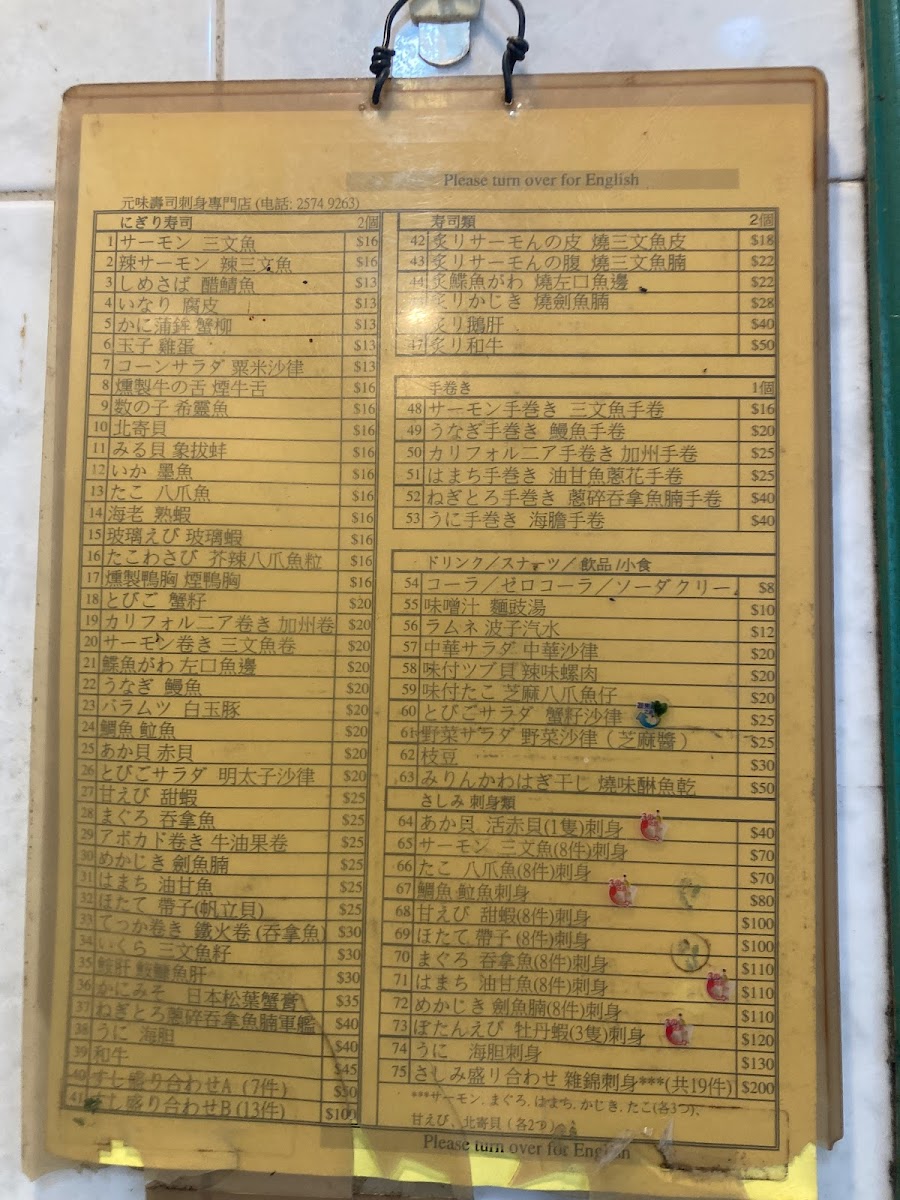 Please turn over for English
元味壽司刺身專門店 (电話: 2574 9263)
にぎり寿司 2個
1 サーモン 三文魚 $16
2 辣サーモン 辣三文魚 $16
3 しめさば 醋鯖魚 $13
4 いなり 腐皮 $13
5 かに蒲鉾 蟹柳 $13
6 玉子 雞蛋 $13
7 コーンサラダ 粟米沙律 $13
8 燻製牛の舌 煙牛舌 $16
9 数の子 希靈魚 $16
10 北寄貝 $16
11 みる貝 象拔蚌 $16
12 いか 墨魚 $16
13 たこ 八爪魚 $16
14 海老 熟蝦 $16
15 玻璃えび 玻璃蝦 $16
16 たこわさび 芥辣八爪魚粒 $16
17 燻製鴨胸 煙鴨胸 $16
18 とびご 蟹籽 $20
19 カリフォル二ア巻き 加州卷 $20
20 サーモン巻き 三文魚卷 $20
21 鰈魚がわ 左口魚邊 $20
22 うなぎ 鰻魚 $20
23 バラムツ 白玉豚 $20
24 鯛魚 䱊魚 $20
25 あか貝 赤貝 $20
26 とびごサラダ 明太子沙律 $20
27 甘えび 甜蝦 $25
28 まぐろ 吞拿魚 $25
29 アボカド巻き 牛油果卷 $25
30 めかじき 劍魚腩 $25
31 はまち 油甘魚 $25
32 ほたて 帶子(帆立貝) $25
33 てっか巻き 鐵火卷 (吞拿魚) $30
34 いくら 三文魚籽 $30
35 鮟肝 鮟鱇魚肝 $30
36 かにみそ 日本松葉蟹膏 $35
37 ねぎとろ蔥碎吞拿魚腩軍艦 $40
38 うに 海胆 $40
39 和牛 $45
40 すし盛り合わせA (7件) $50
41 すし盛り合わせB (13件) $100
寿司類 2個
42 炙リサーモんの皮 燒三文魚皮 $18
43 炙リサーモんの腹 燒三文魚腩 $22
44 炙鰈魚がわ 燒左口魚邊 $22
炙リかじき 燒劍魚腩 $28
炙リ鵝肝 $40
47 炙リ和牛 $50
手巻き 1個
48 サーモン手巻き 三文魚手卷 $16
49 うなぎ手巻き 鰻魚手卷 $20
50 カリフォル二ア手巻き 加州手卷 $25
51 はまち手巻き 油甘魚蔥花手卷 $25
52 ねぎとろ手巻き 蔥碎吞拿魚腩手卷 $40
53 うに手巻き 海膽手卷 $40
ドリンク／スナーツ／飲品 /小食
54 コーラ／ゼロコーラ／ソーダクリー $8
55 味噌汁 麵豉湯 $10
56 ラムネ 波子汽水 $12
57 中華サラダ 中華沙律 $20
58 味付ツブ貝 辣味螺肉 $20
59 味付たこ 芝麻八爪魚仔 $20
60 とびごサラダ 蟹籽沙律 $25
61 野菜サラダ 野菜沙律 ( 芝麻醬 ) $25
62 枝豆 $30
63 みりんかわはぎ干し 燒味醂魚乾 $50
さしみ 刺身類
64 あか貝 活赤貝(1隻)刺身 $40
65 サーモン 三文魚(8件)刺身 $70
66 たこ 八爪魚(8件)刺身 $70
67 鯛魚 䱊魚刺身 $80
68 甘えび 甜蝦(8件)刺身 $100
69 ほたて 帶子 (8件)刺身 $100
70 まぐろ 吞拿魚(8件)刺身 $110
71 はまち 油甘魚(8件)刺身 $110
72 めかじき 劍魚腩(8件)刺身 $110
73 ぼたんえび 牡丹蝦(3隻)刺身 $120
74 うに 海胆刺身 $130
75 さしみ盛り合わせ 雜錦刺身***(共19件) $200
***サーモン, まぐろ, はまち, かじき, たこ(各3つ)、
甘えび、北寄貝 ( 各2つ)
Please turn over for English